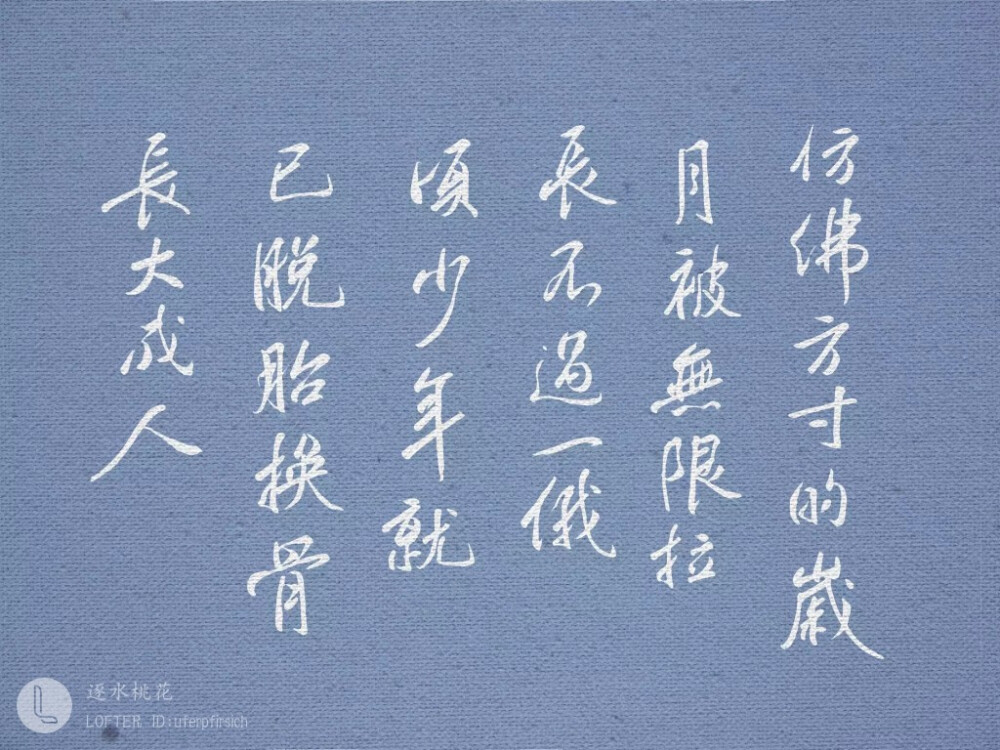 仿佛方寸的歲
月被無限拉
長不過一俄
頃少年就
已脫胎換骨
長大成人
逐水桃花
LOFTER ID:uferpfirsich